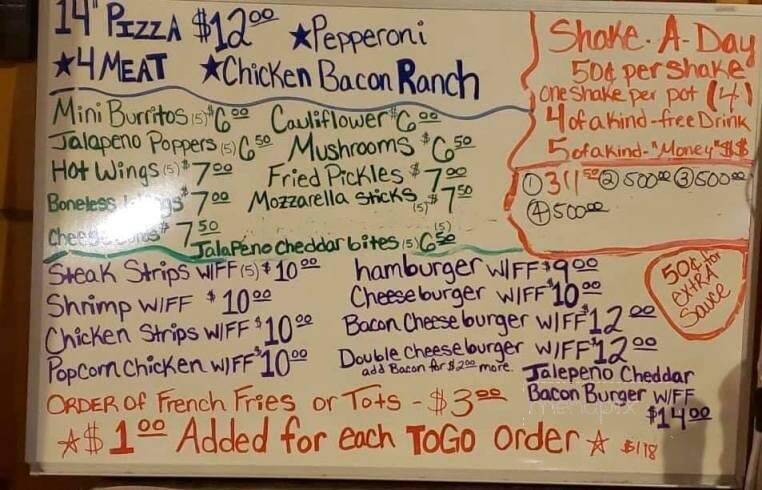 14" PIZZA $12.00 ★Pepperoni
★4 MEAT ★Chicken Bacon Ranch
Mini Burritos (5) $6.00 Cauliflower $6.00
Jalapeno Poppers (5) 6.50 Mushrooms $6.50
Hot Wings (5) $7.00 Fried Pickles $7.00
Boneless $7.00 Mozzarella Sticks (5) $7.50
$7.50
Jalapeno Cheddar bites (5) 6.50 (5)
Steak Strips W/FF (5) $10.00
Shrimp W/FF $10.00
Chicken Strips W/FF $10.00
Popcorn Chicken W/FF $10.00
hamburger W/FF $9.00
Cheeseburger W/FF $10.00
Bacon Cheeseburger W/FF $12.00
Double Cheeseburger W/FF $12.00
add Bacon for $2.00 more.
Jalepeno Cheddar
Bacon Burger W/FF
$14.00
ORDER of French Fries or Tots - $3.00
★$1.00 Added for each TOGO Order★ $1.18
Shake-A-Day
50¢ per shake
one shake per pot (4)
4 of a kind-free Drink
5 of a kind-"Money" $$
① 311.50 ② 500.00 ③ 500.00
④ 500.00
50¢ for
extra
Sauce